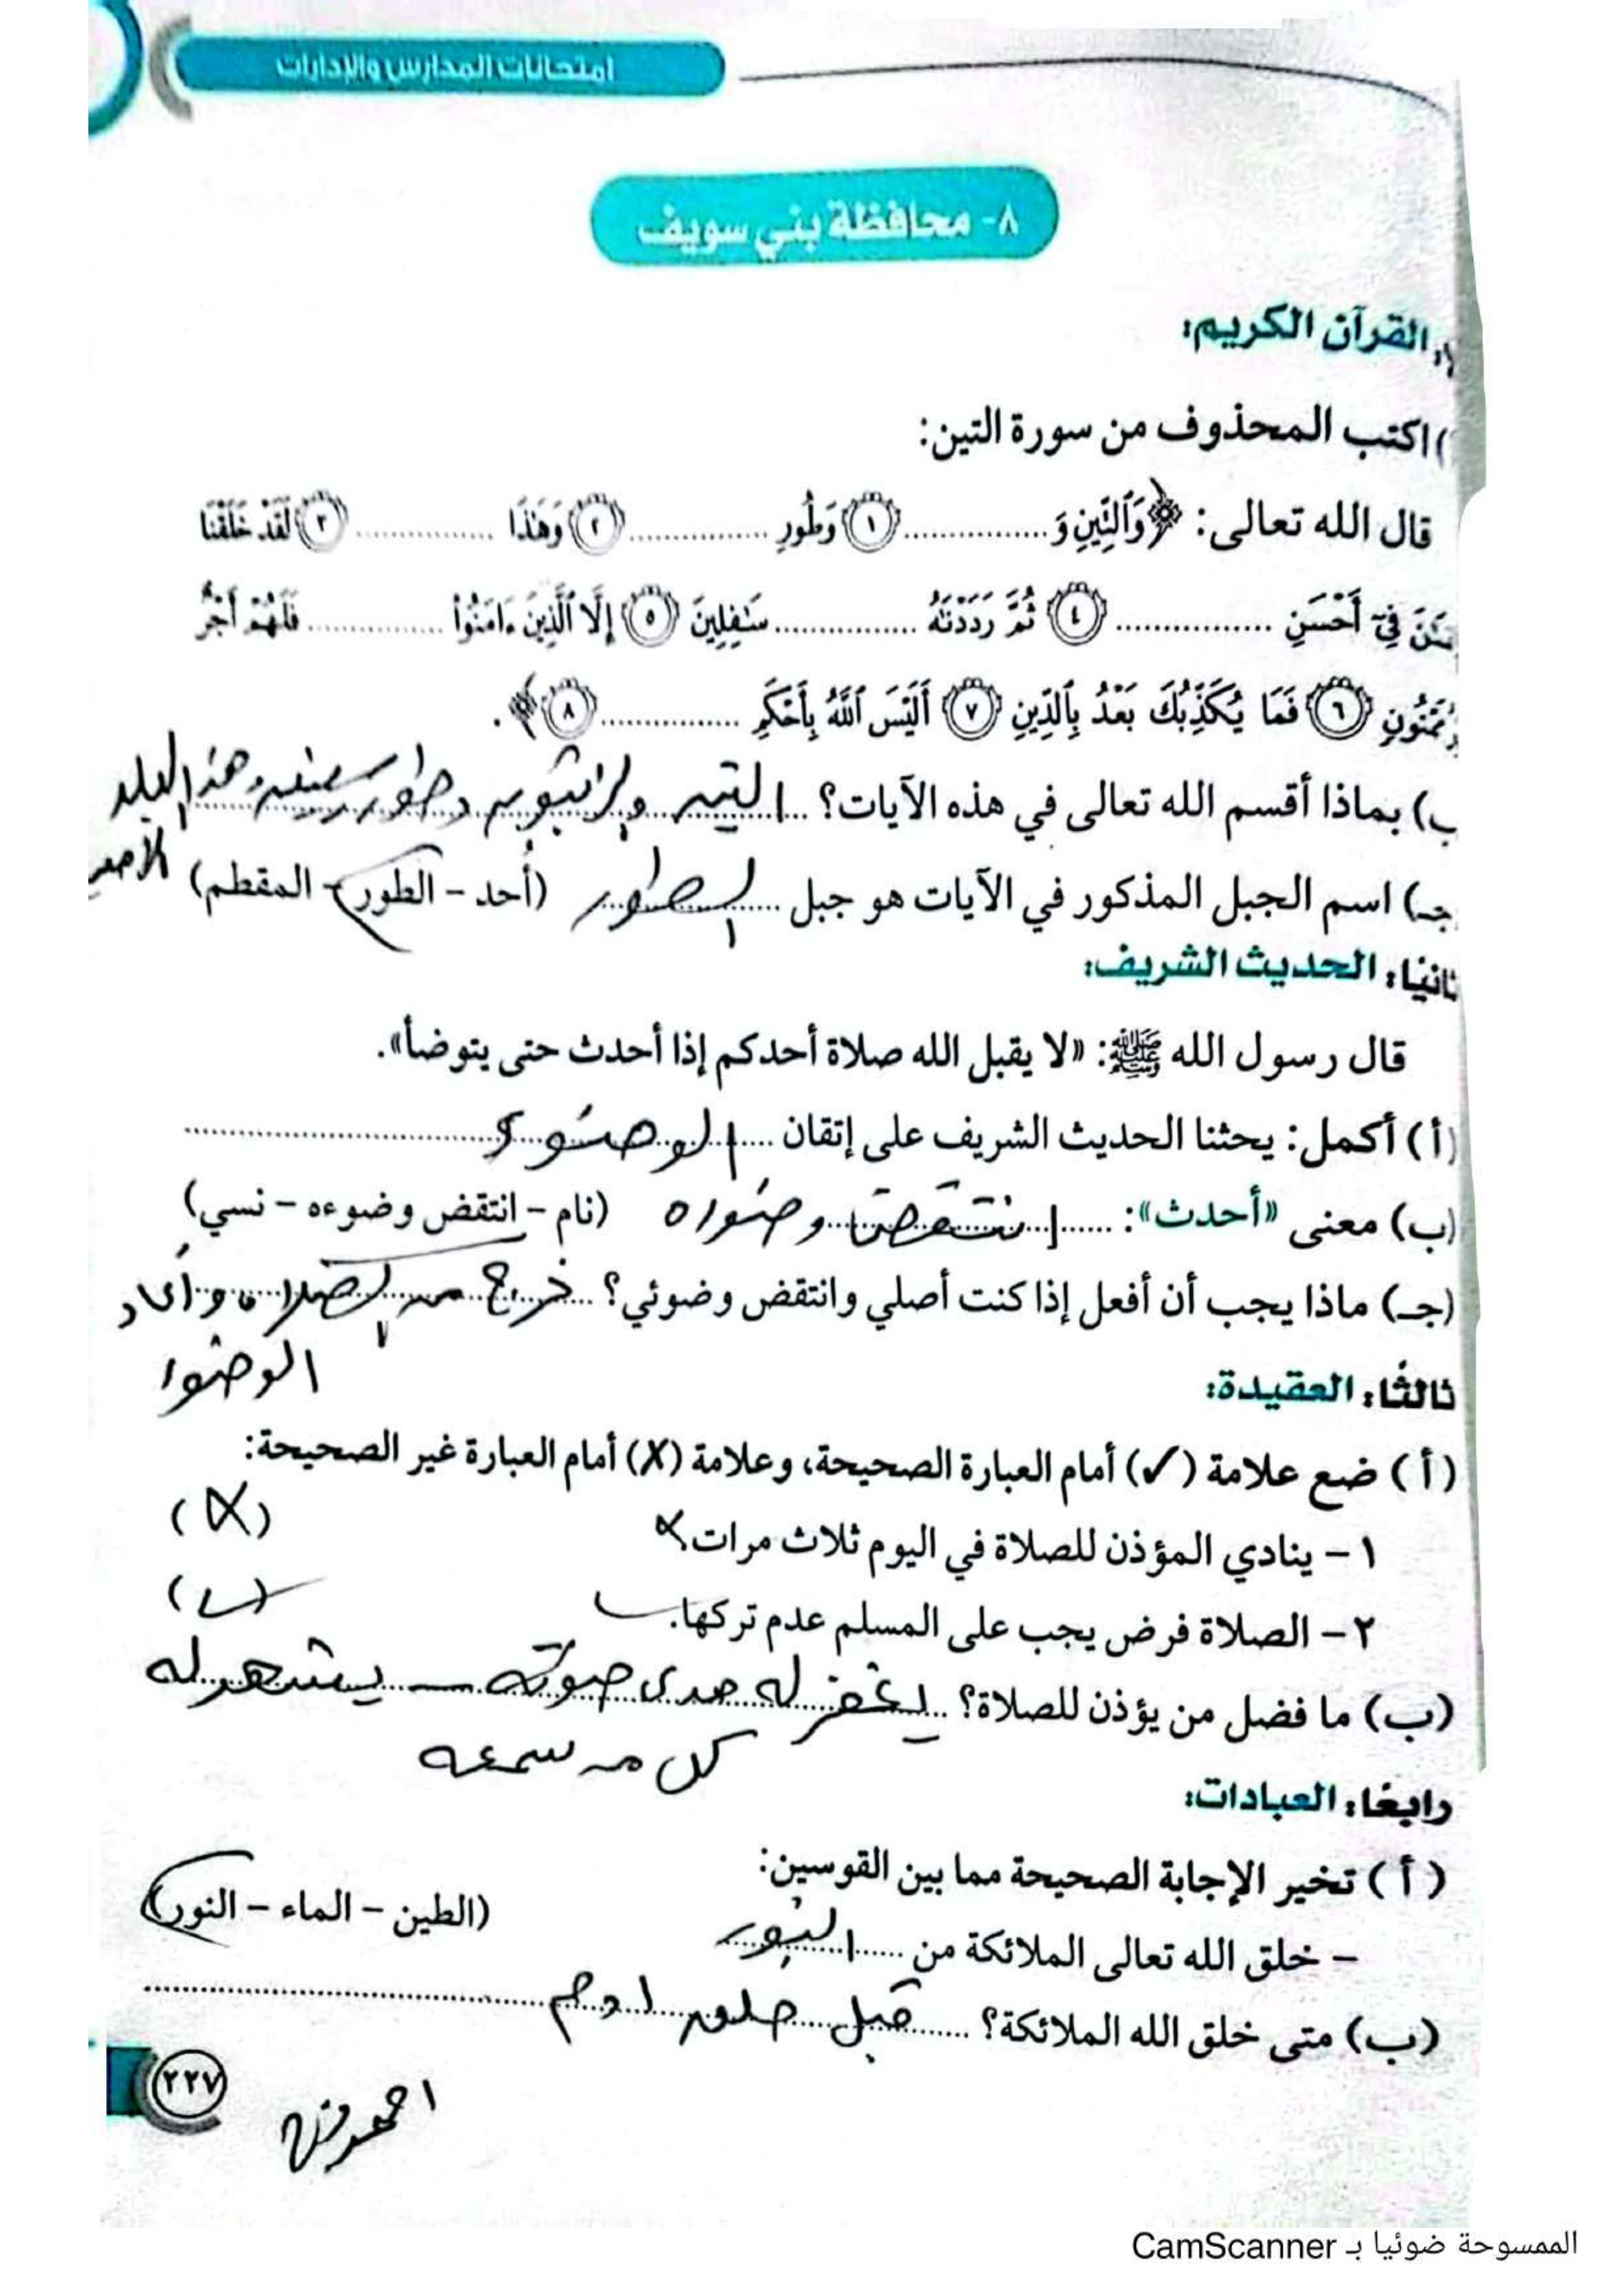 امتحانات المدارس والإدارات
٨- محافظة بني سويف
القرآن الكريم:
) اكتب المحذوف من سورة التين:
قال الله تعالى: ﴿وَٱلتِّينِ وَ............... ١ وَطُورِ ............... ٢ وَهَٰذَا ............... ٣ لَقَدْ خَلَقْنَا
فِىٓ أَحْسَنِ ............... ٤ ثُمَّ رَدَدْنَٰهُ ............... سَٰفِلِينَ ٥ إِلَّا ٱلَّذِينَ ءَامَنُوا۟ ............... فَلَهُمْ أَجْرٌ
مَمْنُونٍ ٦ فَمَا يُكَذِّبُكَ بَعْدُ بِٱلدِّينِ ٧ أَلَيْسَ ٱللَّهُ بِأَحْكَمِ ............... ٨﴾.
ب) بماذا أقسم الله تعالى في هذه الآيات؟ التين والزيتون وطور سنين وهذا البلد
الامين
جـ) اسم الجبل المذكور في الآيات هو جبل الطور (أُحد - الطور - المقطم)
ثانيًا: الحديث الشريف:
قال رسول الله ﷺ: «لا يقبل الله صلاة أحدكم إذا أحدث حتى يتوضأ».
(أ) أكمل: يحثنا الحديث الشريف على إتقان الوضوء
(ب) معنى «أحدث»: انتقض وضوره (نام - انتقض وضوءه - نسي)
(جـ) ماذا يجب أن أفعل إذا كنت أصلي وانتقض وضوئي؟ خرج من الصلاه وأعاد
الوضوا
ثالثًا: العقيدة:
(أ) ضع علامة (✓) أمام العبارة الصحيحة، وعلامة (✗) أمام العبارة غير الصحيحة:
١ - ينادي المؤذن للصلاة في اليوم ثلاث مرات ✗ (✗)
٢ - الصلاة فرض يجب على المسلم عدم تركها. ✓ (✓)
(ب) ما فضل من يؤذن للصلاة؟ يغفر له مدى صوته - يشهد له
كل من سمعه
رابعًا: العبادات:
(أ) تخير الإجابة الصحيحة مما بين القوسين:
- خلق الله تعالى الملائكة من النور (الطين - الماء - النور)
(ب) متى خلق الله الملائكة؟ قبل خلق ادم
٢٢٧
الممسوحة ضوئيا بـ CamScanner